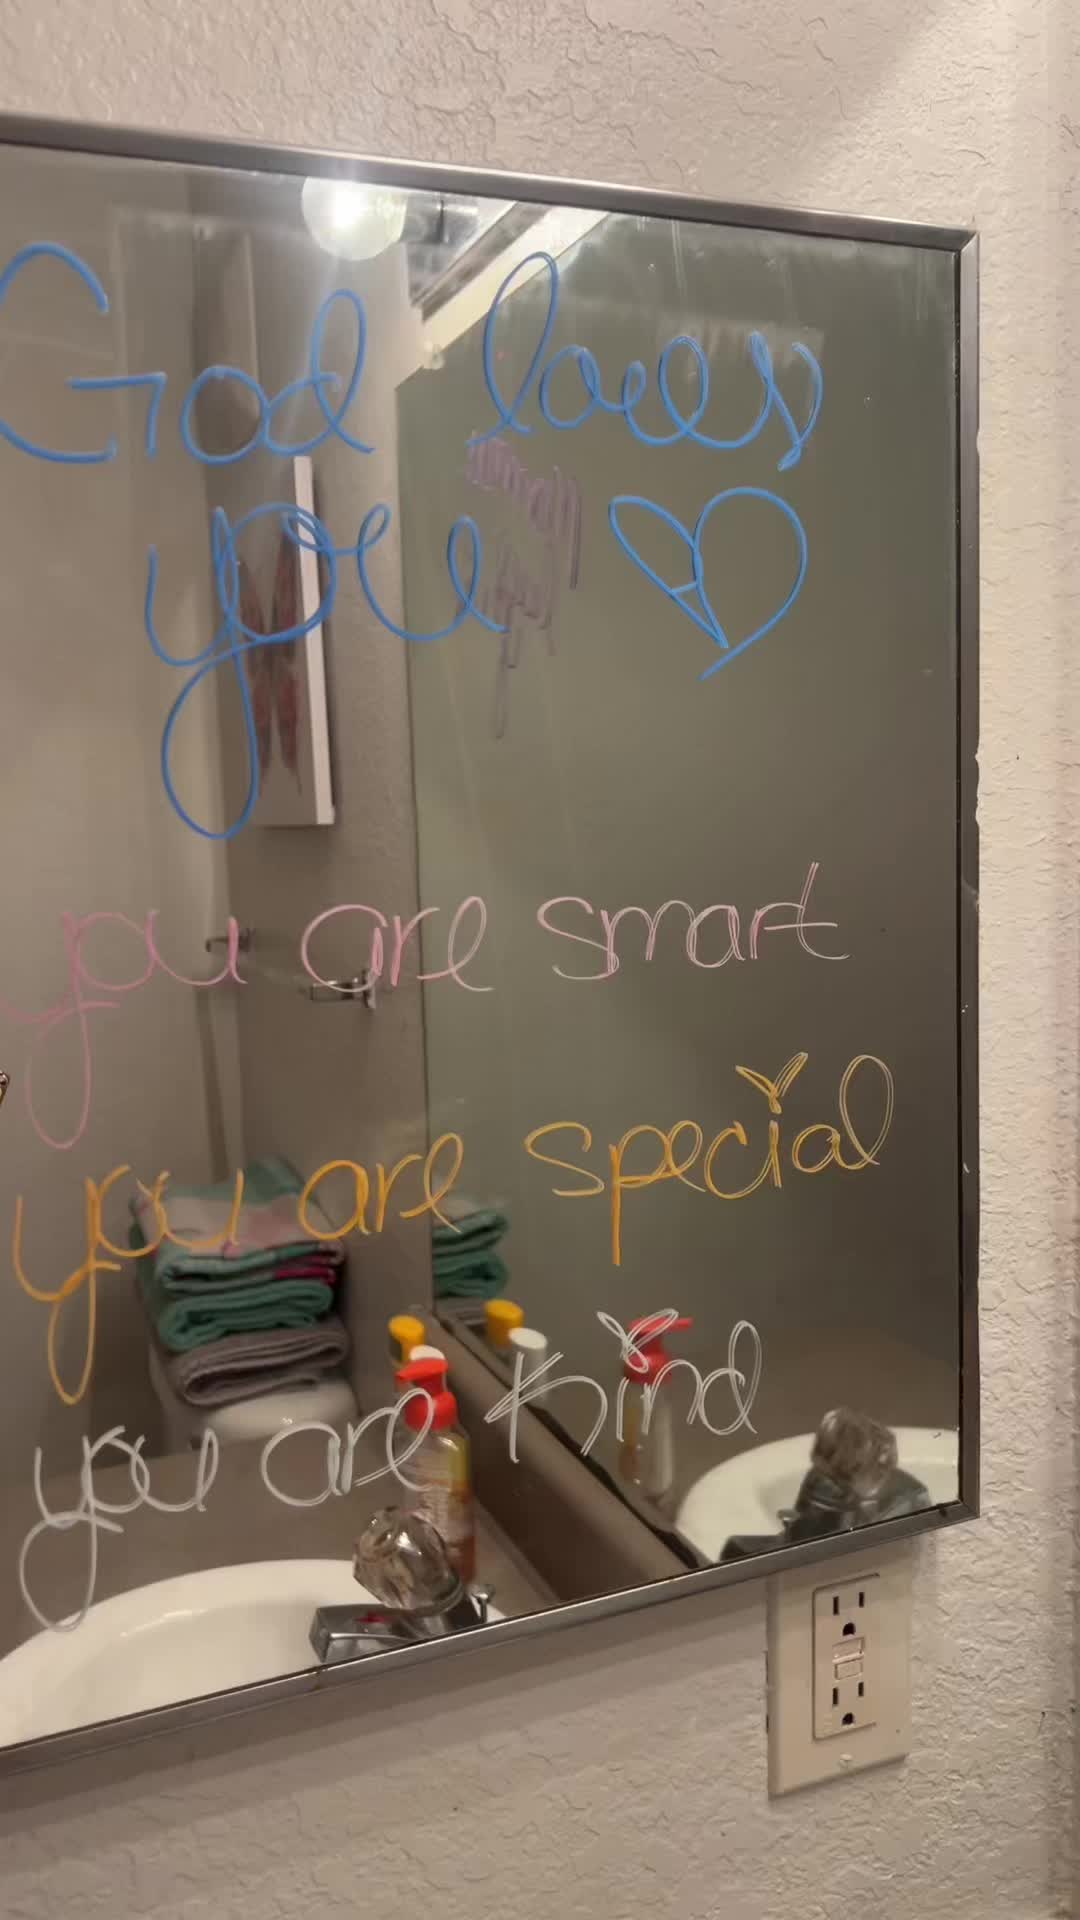 God loves
you
you are smart
you are special
you are kind